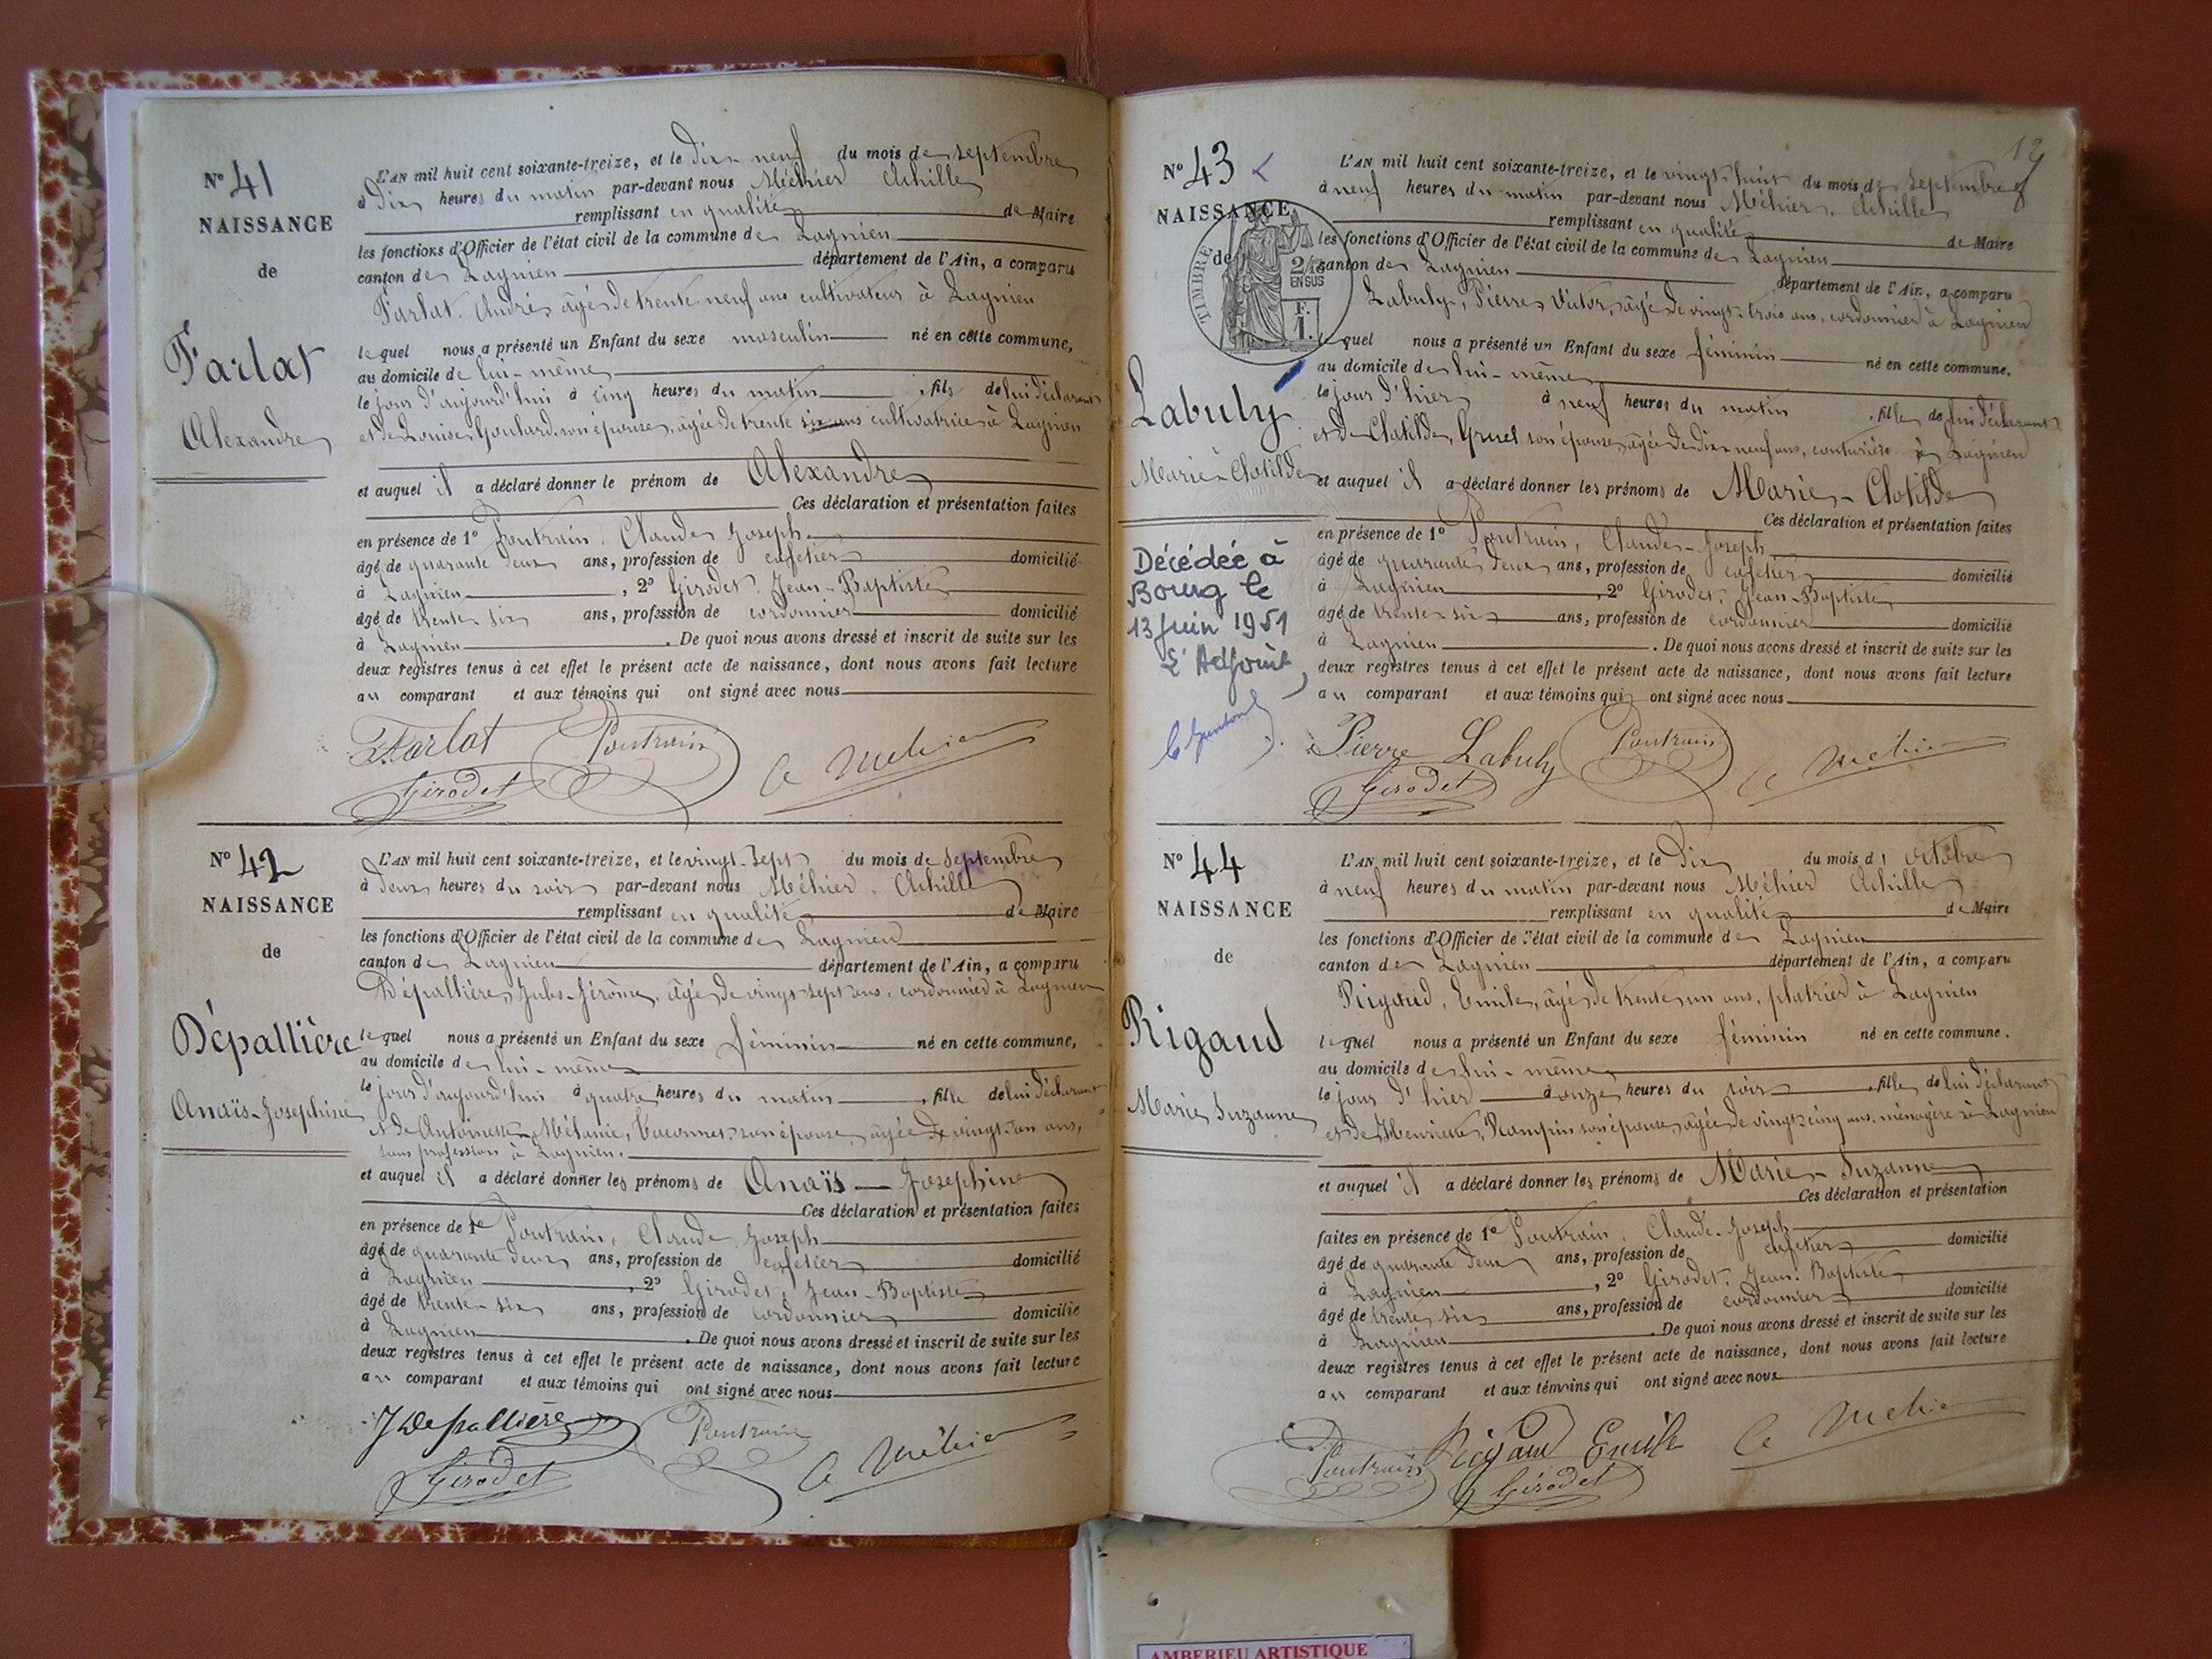 N° 41
NAISSANCE
de
Farlat
Alexandre
L'AN mil huit cent soixante-treize, et le dix-neuf du mois de septembre
à Dix heures du matin par-devant nous Méhier Achille
remplissant en qualité de Maire
les fonctions d'Officier de l'état civil de la commune de Lagnieu
canton de Lagnieu département de l'Ain, a comparu
Farlat André, âgé de trente neuf ans cultivateur à Lagnieu
lequel nous a présenté un Enfant du sexe masculin né en cette commune,
au domicile de lui-même
le jour d'aujourd'hui à cinq heures du matin, fils de lui déclarant
et de Louise Goulard son épouse, âgée de trente six ans cultivatrice à Lagnieu
et auquel il a déclaré donner le prénom de Alexandre
Ces déclaration et présentation faites
en présence de 1° Poutrain, Claude Joseph
âgé de quarante deux ans, profession de cafetier domicilié
à Lagnieu, 2° Girodet, Jean-Baptiste
âgé de trente-six ans, profession de cordonnier domicilié
à Lagnieu. De quoi nous avons dressé et inscrit de suite sur les
deux registres tenus à cet effet le présent acte de naissance, dont nous avons fait lecture
au comparant et aux témoins qui ont signé avec nous
Farlat Poutrain
Girodet A Méhier
N° 42
NAISSANCE
de
Dépallière
Anaïs-Josephine
L'AN mil huit cent soixante-treize, et le vingt-sept du mois de septembre
à Deux heures du soir par-devant nous Méhier, Achille
remplissant en qualité de Maire
les fonctions d'Officier de l'état civil de la commune de Lagnieu
canton de Lagnieu département de l'Ain, a comparu
Dépallière, Jules-Jérôme, âgé de vingt sept ans, cordonnier à Lagnieu
lequel nous a présenté un Enfant du sexe féminin né en cette commune,
au domicile de lui-même
le jour d'aujourd'hui à quatre heures du matin, fille de lui déclarant
et de Antoinette-Mélanie, son épouse, âgée de vingt-un ans,
sans profession à Lagnieu.
et auquel il a déclaré donner les prénoms de Anaïs-Josephine
Ces déclaration et présentation faites
en présence de 1° Poutrain, Claude Joseph
âgé de quarante deux ans, profession de cafetier domicilié
à Lagnieu, 2° Girodet, Jean-Baptiste
âgé de trente-six ans, profession de cordonnier domicilié
à Lagnieu. De quoi nous avons dressé et inscrit de suite sur les
deux registres tenus à cet effet le présent acte de naissance, dont nous avons fait lecture
au comparant et aux témoins qui ont signé avec nous
J Depallière Poutrain
Girodet A Méhier
19
N° 43
NAISSANCE
de
TIMBRE
2/10
EN SUS
F.
1.
Labuly
Marie-Clotilde
Décédée à
Bourg le
13 juin 1951
L'Adjoint,
L'AN mil huit cent soixante-treize, et le vingt-huit du mois de septembre
à neuf heures du matin par-devant nous Méhier, Achille
remplissant en qualité de Maire
les fonctions d'Officier de l'état civil de la commune de Lagnieu
canton de Lagnieu département de l'Ain, a comparu
Labuly, Pierre Victor, âgé de vingt-trois ans, cordonnier à Lagnieu
lequel nous a présenté un Enfant du sexe féminin né en cette commune,
au domicile de lui-même
le jour d'hier à neuf heures du matin, fille de lui déclarant
et de Clotilde, Gruel son épouse, âgée de dix-neuf ans, couturière à Lagnieu
et auquel il a déclaré donner les prénoms de Marie-Clotilde
Ces déclaration et présentation faites
en présence de 1° Poutrain, Claude-Joseph
âgé de quarante deux ans, profession de cafetier domicilié
à Lagnieu, 2° Girodet, Jean-Baptiste
âgé de trente-six ans, profession de cordonnier domicilié
à Lagnieu. De quoi nous avons dressé et inscrit de suite sur les
deux registres tenus à cet effet le présent acte de naissance, dont nous avons fait lecture
au comparant et aux témoins qui ont signé avec nous
Pierre Labuly Poutrain
Girodet A Méhier
N° 44
NAISSANCE
de
Rigaud
Marie Suzanne
L'AN mil huit cent soixante-treize, et le Dix du mois d'octobre
à neuf heures du matin par-devant nous Méhier Achille
remplissant en qualité de Maire
les fonctions d'Officier de l'état civil de la commune de Lagnieu
canton de Lagnieu département de l'Ain, a comparu
Rigaud, Emile, âgé de trente un ans, platrier à Lagnieu
lequel nous a présenté un Enfant du sexe féminin né en cette commune.
au domicile de lui-même
le jour d'hier à onze heures du soir, fille de lui déclarant
et de Henriette, Plompin son épouse, âgée de vingt-cinq ans, ménagère à Lagnieu
et auquel il a déclaré donner les prénoms de Marie-Suzanne
Ces déclaration et présentation
faites en présence de 1° Poutrain, Claude-Joseph
âgé de quarante deux ans, profession de cafetier domicilié
à Lagnieu, 2° Girodet, Jean-Baptiste
âgé de trente six ans, profession de cordonnier domicilié
à Lagnieu. De quoi nous avons dressé et inscrit de suite sur les
deux registres tenus à cet effet le présent acte de naissance, dont nous avons fait lecture
au comparant et aux témoins qui ont signé avec nous
Poutrain Rigaud Emile A Méhier
Girodet
AMBERIEU ARTISTIQUE